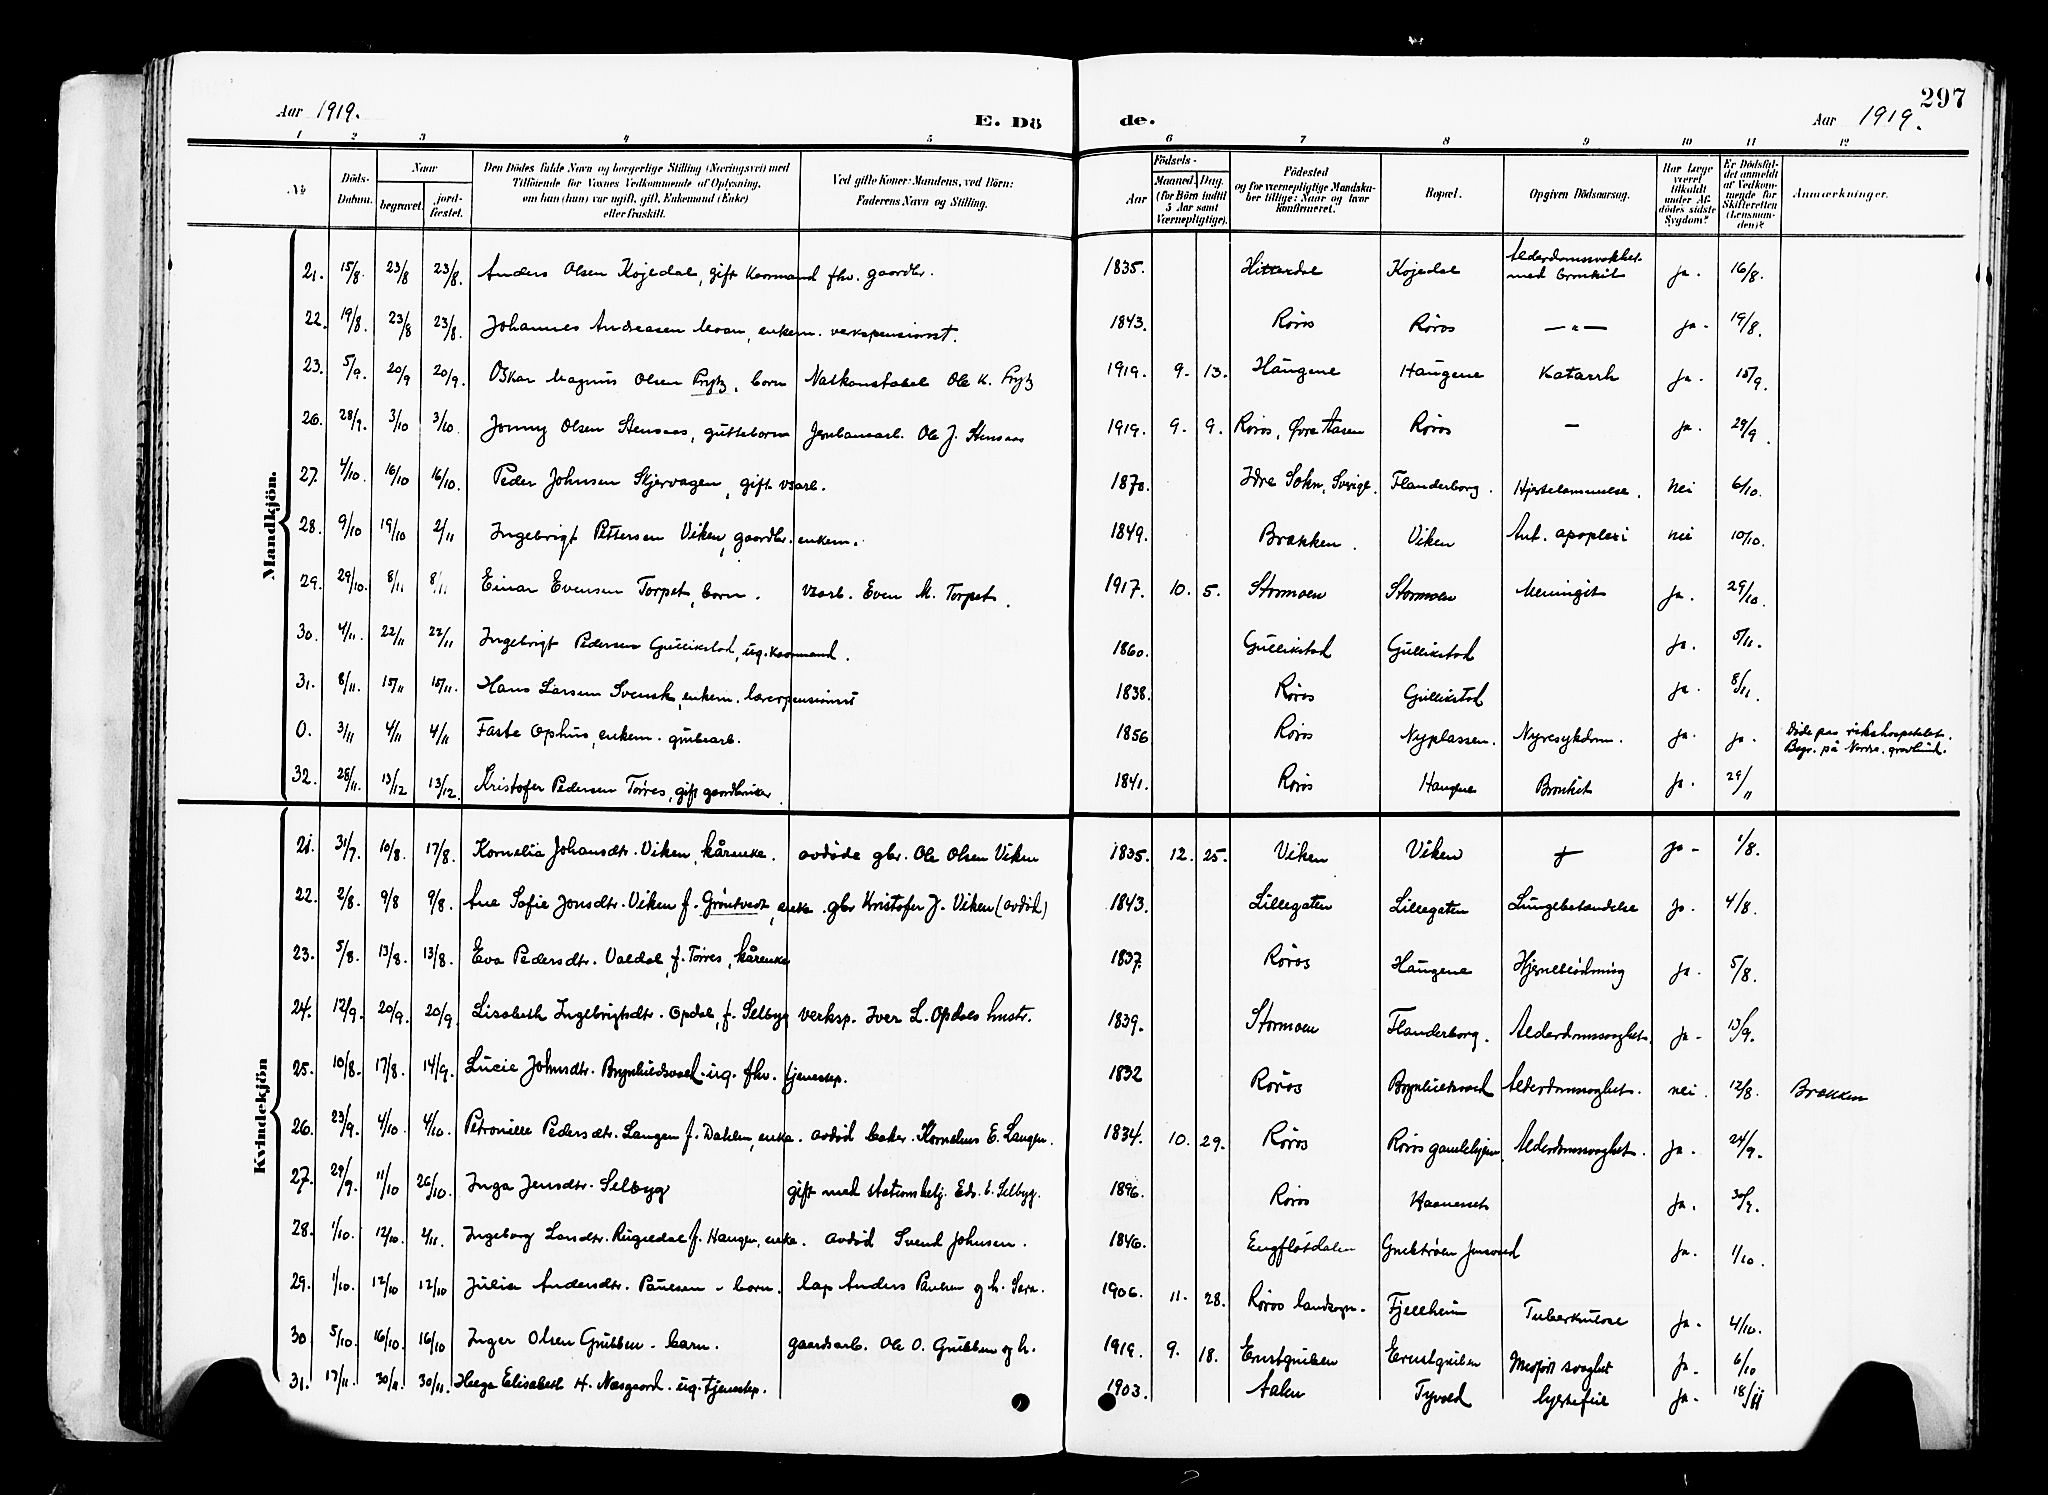 297
Aar 1919. E. Dö de. Aar 1919.
1 2 3 4 5 6 7 8 9 10 11 12
№ Döds-Datum. Naar begravet. jord-fæstet. Den Dödes fulde Navn og borgerlige Stilling (Næringsvei) med Tilföiende for Voxnes Vedkommende af Oplysning, om han (hun) var ugift, gift, Enkemand (Enke) eller fraskilt. Ved gifte Koner: Mandens, ved Börn: Faderens Navn og Stilling. Födsels- Aar Maaned. Dag. (for Börn indtil 5 Aar samt Værnepligtige). Födested og for værnepligtige Mandska-ber tillige: Naar og hvor konfirmeret. Bopæl. Opgiven Dödsaarsag. Har læge været tilkaldt under Af-dödes sidste Sygdom? Er Dödsfal-det anmeldt af Vedkom-mende for Skifteretten (Lensman-den)? Anmærkninger.
Mandkjön.
21. 15/8. 23/8 23/8. Anders Olsen Kojedal, gift kaarmand fhv. gaardbr. 1835. Hitterdal Kojedal Alderdomssvakhet med bronkit ja. 16/8.
22. 19/8. 23/8 23/8. Johannes Andreasen Moan, enkem. verkspensionist. 1843. Røros Røros — " — ja. 19/8.
23. 5/9. 20/9 20/9. Oskar Magnus Olsen Prytz, barn Natkonstabel Ole K. Prytz 1919. 9. 13. Haugene Haugene Katarrh ja. 15/9.
26. 28/9. 3/10 3/10. Jonny Olsen Stensaas, guttebarn Jernbanearb. Ole J. Stensaas 1919. 9. 9. Røros, Øvre Aasen Røros — ja. 29/9.
27. 4/10. 16/10 16/10. Peder Johnsen Skjervagen, gift vsarb. 1870. Idre Sokn, Sverige. Flanderborg. Hjertelammelse. nei 6/10.
28. 9/10 19/10 2/11 Ingebrigt Pettersen Viken, gaardbr. enkem. 1849. Brækken. Viken Ant. apoplexi nei 10/10.
29. 29/10. 8/11 8/11 Einar Evensen Torpet, barn. vsarb. Even M. Torpet. 1917. 10. 5. Stormoen Stormoen Meningit ja. 29/10.
30. 4/11. 22/11 22/11 Ingebrigt Pedersen Gullikstad, ug. kaarmand. 1860. Gullikstad Gullikstad ja. 5/11.
31. 8/11. 15/11 15/11. Hans Larsen Svensk, enkem. lærerpensionist 1838. Røros Gullikstad ja. 8/11.
0. 3/11 4/11 4/11 Faste Ophus, enkem. grubearb. 1856 Røros Nyplassen. Nyresykdom. ja. ja. Døde paa rikshospitalet. Begr. på Nordre. gravlund.
32. 28/11. 13/12 13/12. Kristofer Pedersen Torres, gift gaardbruker. 1841. Røros Haugene Bronkit ja. 29/11
Kvindekjön
21. 31/7. 10/8. 17/8. Kornelia Johansdtr. Viken, kårenke. avdøde gbr. Ole Olsen Viken 1835. 12. 25. Viken Viken ja - 1/8.
22. 2/8. 9/8 9/8. Ane Sofie Jonsdtr. Viken f. Grøntvedt, enke. gbr Kristofer J. Viken (avdød) 1843. Lillegaten Lillegaten Lungebetændelse ja. 4/8.
23. 5/8. 13/8. 13/8. Eva Pedersdtr. Valdal, f. Torres, kårenke 1837. Røros Haugene Hjerneblödning ja. 5/8.
24. 12/9. 20/9. 20/9. Lisabeth Ingebrigtsdtr. Opdal, f. Selbyg verksp. Iver L. Opdals hustr. 1839. Stormoen Flanderborg. Alderdomssvaghet. ja - 13/9.
25. 10/8. 17/8. 14/9. Lucie Johnsdtr. Brynhildsvold. ug. fhv. tjenestep. 1832 Røros Brynhildsvold Alderdomssvaghet. nei. 12/8. Brækken
26. 23/9. 4/10 4/10. Petronille Pedersdtr. Langen f. Dahlen, enke. avdød baker. Kornelius E. Langen. 1834. 10. 29. Røros Røros gamlehjem. Alderdomssvaghet. ja. 24/9.
27. 29/9. 11/10 26/10. Inga Jensdtr. Selbyg gift med stationsbetj. Edv. E. Selbyg. 1896. Røros ja. 30/9.
28. 1/10. 12/10. 2/11. Ingeborg Larsdtr. Rugledal f. Haugen, enke. avdød Svend Johnsen. 1846. Engflötdalen Jensvold ja. 1/10.
29. 1/10. 12/10 12/10 Julia Andersdtr. Paulsen - barn. lap Anders Paulsen og h. Sara. 1906. 11. 28. Røros landsogn. Fjellheim Tuberkulose ja. 4/10.
30 5/10. 16/10. 16/10 Inger Olsen Grubben - barn. gaardsarb. Ole O. Grubben og h. 1919. 9. 18. Ernstgruben Ernstgruben Medfødt svaghet ja. 6/10
31. 17/11. 30/11. 30/11. Helga Elisabeth H. Næsgaard. ug. tjenestep. 1903. Aalen Tyvold hjertefeil ja. 18/11